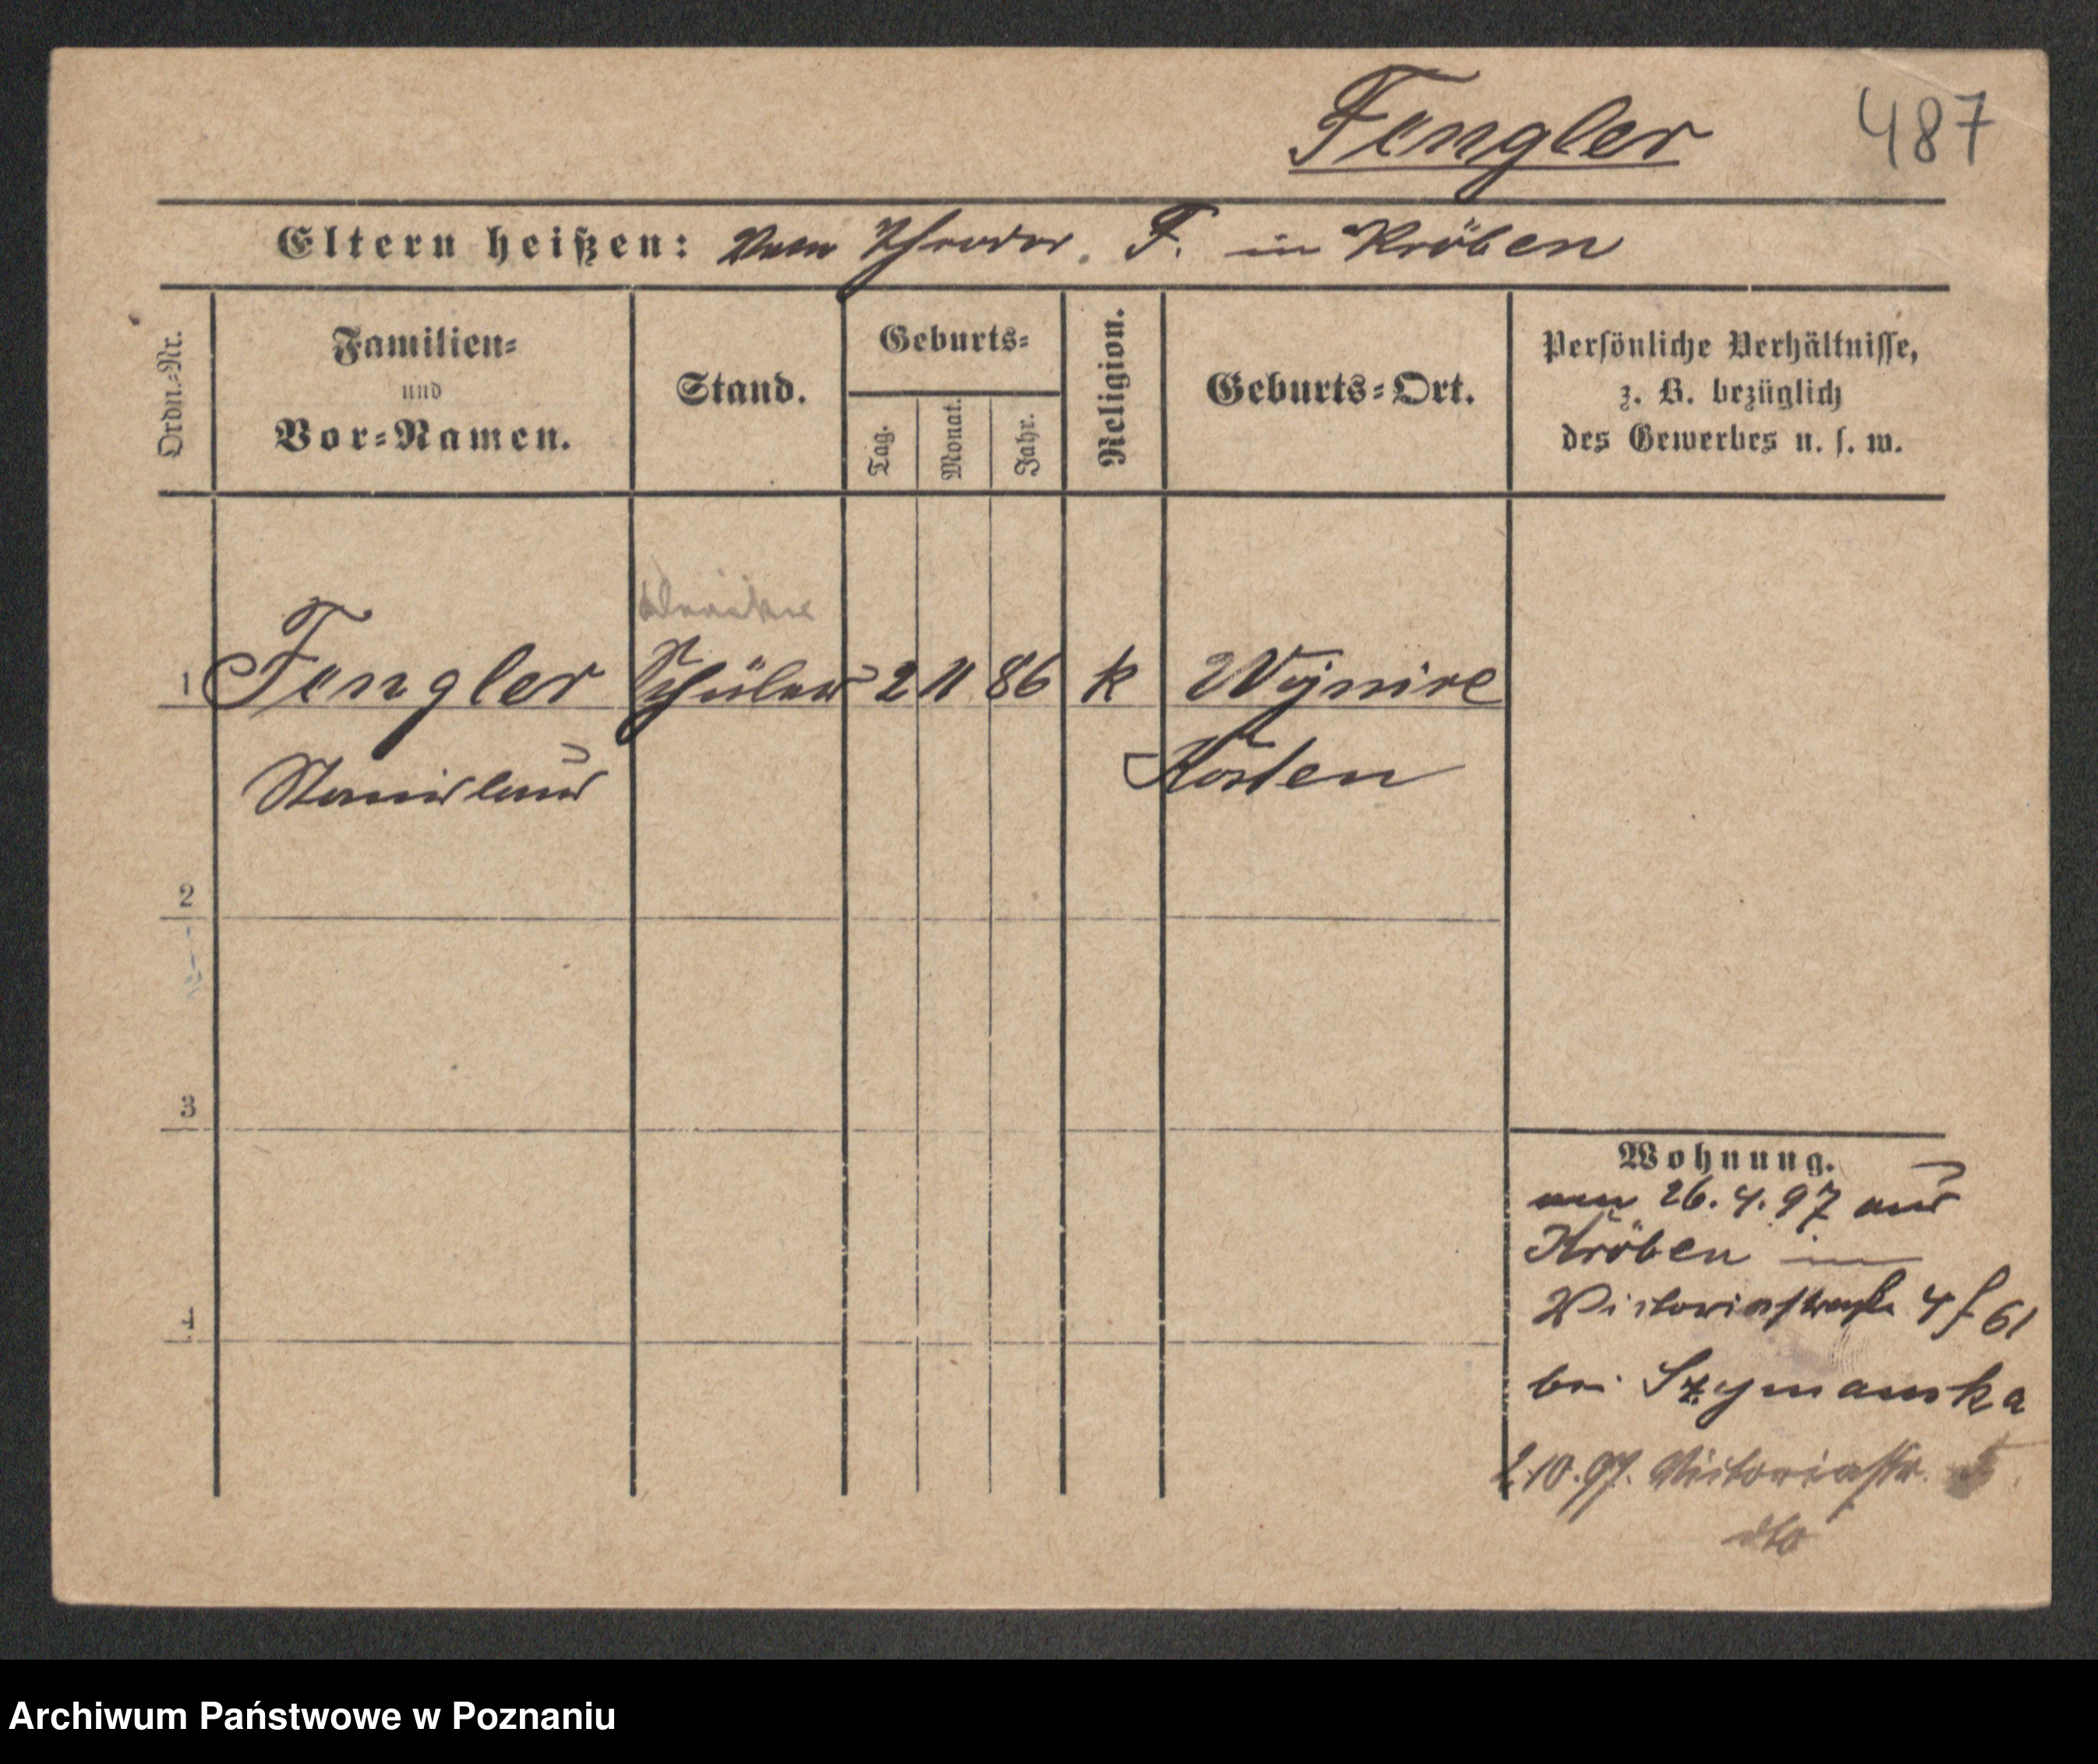 Fengler 487
Eltern heißen: Vater Theodor. F. in Kröben
Ordn.-Nr.
Familien-
und
Vor-Namen.
Stand.
Geburts-
Tag.
Monat.
Jahr.
Religion.
Geburts-Ort.
Persönliche Verhältnisse,
z. B. bezüglich
des Gewerbes u. s. w.
1 Fengler Schüler 2 11 86 k
Stanislaus Kosten
2
3
4
Wohnung.
am 26.4.97 aus
Kröben in
Victoriastraße 4 f 61
bei Szymanska
2.10.97. Victoriastr. 5
dto